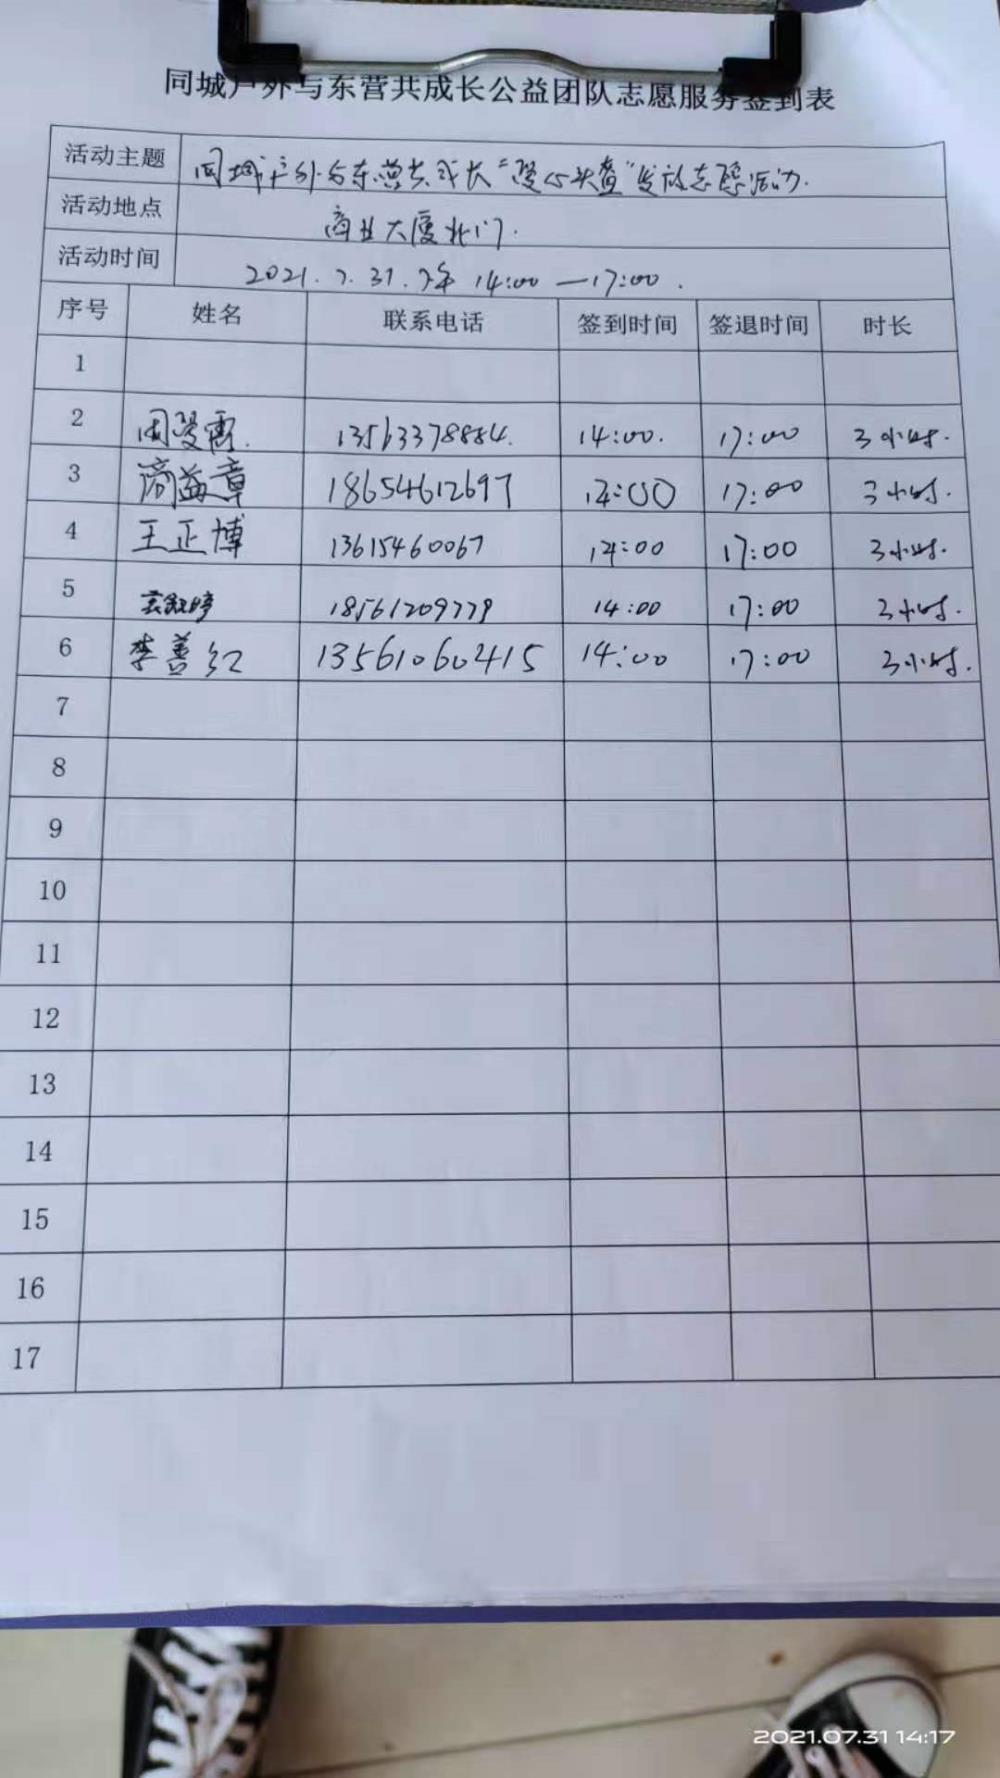 同城户外与东营共成长公益团队志愿服务签到表
活动主题 同城户外与东营共成长"爱心头盔"发放志愿活动.
活动地点 商业大厦北门.
活动时间 2021.7.31.下午 14:00—17:00.
序号 姓名 联系电话 签到时间 签退时间 时长
1
2 13563378884. 14:00. 17:00 3小时.
3 益章 18654612697 14:00 17:00 3小时.
4 王正博 13615460067 14:00 17:00 3小时.
5 18561209779 14:00 17:00 3小时.
6 李善红 13561060415 14:00 17:00 3小时.
7
8
9
10
11
12
13
14
15
16
17
2021.07.31 14:17